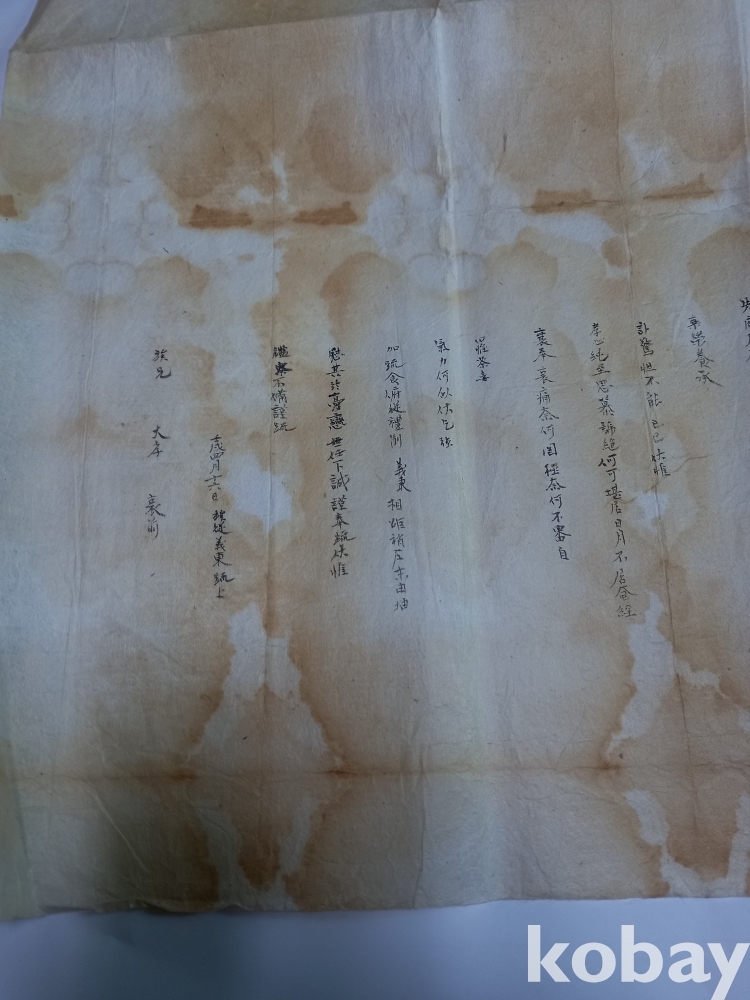 榮養承
訃驚怛不能已已伏惟
孝心純至思慕號絶何可堪居日月不居奄經
襄奉哀痛奈何罔極奈何不審自
罹荼毒
氣力何似伏乞强
加疏食俯從禮制 義東 相
慰其於憂戀無任下誠謹奉疏伏惟
鑑察不備謹疏
四月十六日 族從義東疏上
族兄 大孝 哀前
kobay